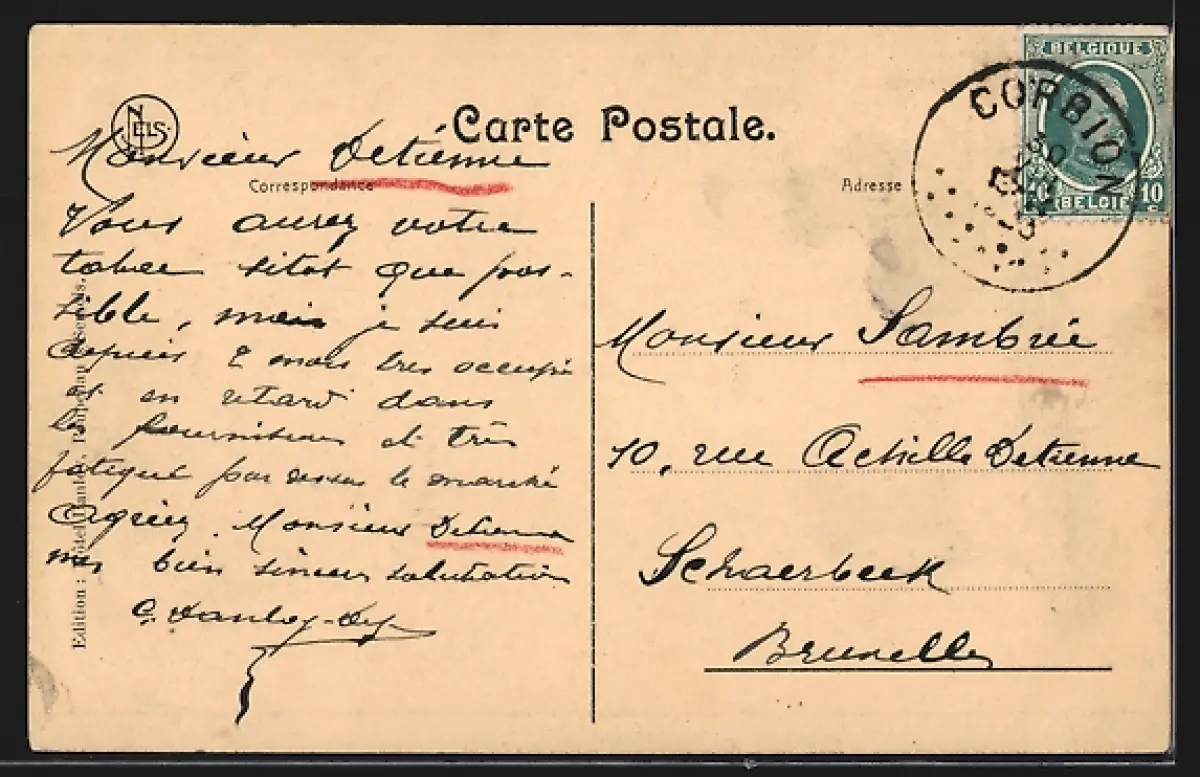 NELS
Carte Postale.
Correspondance
Monsieur Detienne
Vous aurez votre
tabac sitot que pos-
sible, mais je suis
depuis 2 mois tres occupé
et en retard dans
les fournitures et très
fatigué par dessus le marché
Agréez, Monsieur Detienne
mes bien sincères salutations
Edition : Hôtel
Adresse
BELGIQUE
10 10
BELGIË
CORBION
30
Monsieur Sambrée
10, rue Achille Detienne
Schaerbeek
Bruxelles